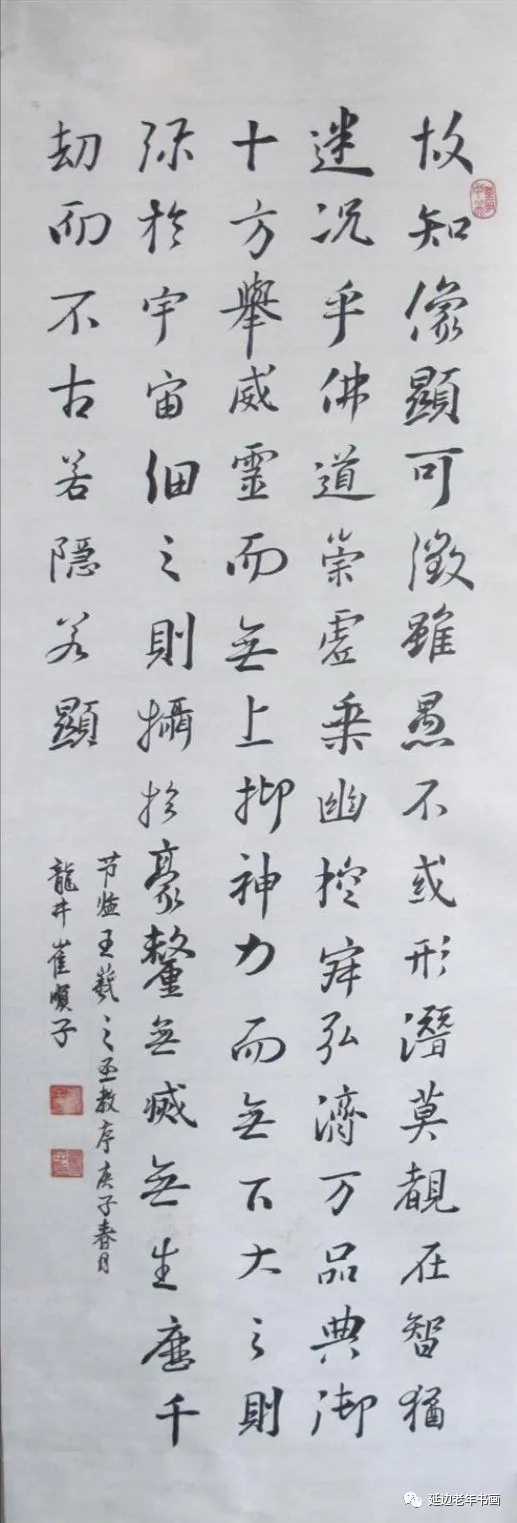 故知像顯可徵雖愚不或形潛莫覩在智猶
迷况乎佛道崇虚乘幽控寂弘濟万品典御
十方舉威靈而無上抑神力而無下大之則
弥於宇宙细之則攝於豪釐無滅無生歷千
劫而不古若隱若顯
节临王羲之圣教序庚子春月
龍井崔順子
延边老年书画